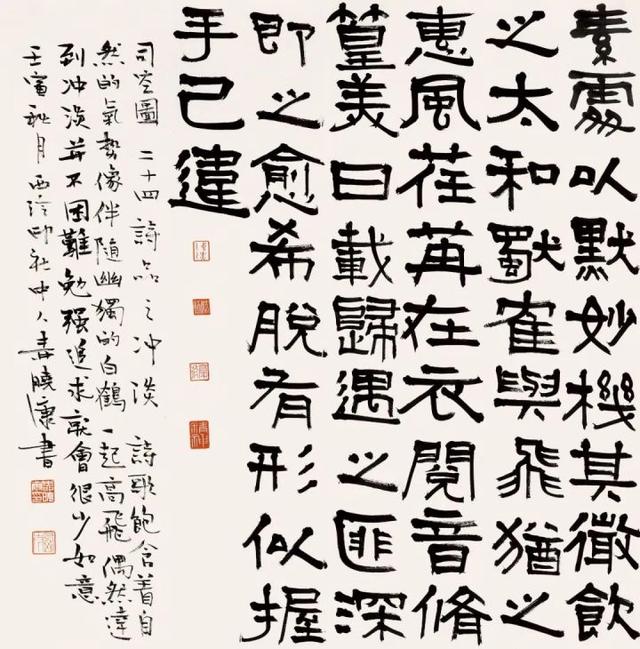 素處以默妙機其微飲
之太和獨隺與飛猶之
惠風荏苒在衣閱音脩
篁美曰載歸遇之匪深
即之愈希脫有形似握
手已違
司空圖 二十四詩品之冲淡 詩歌飽含着自
然的氣勢像伴隨幽獨的白鶴一起高飛偶然達
到冲淡并不困難勉强追求就會很少如意
壬寅秋月西泠印社中人曉康書